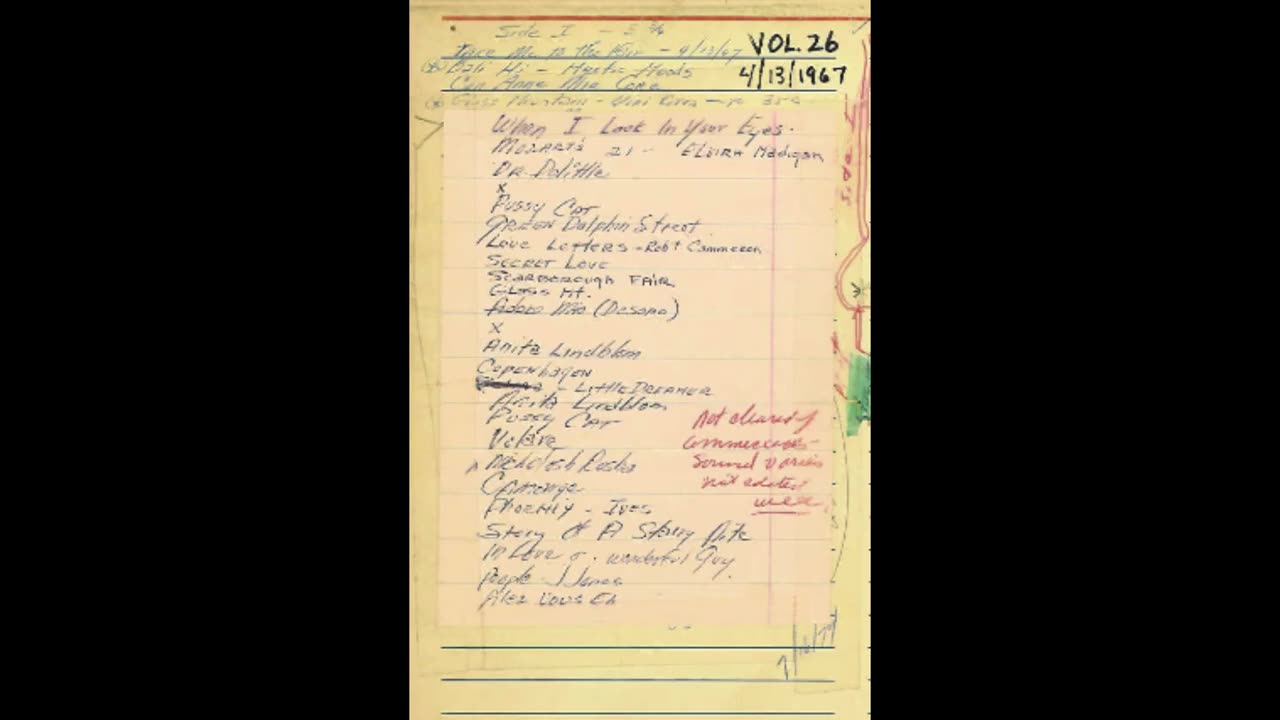 Side I - 3 3/4
Take Me To The Fair - 4/13/67
VOL. 26
Bali Hi - Mystic Moods
4/13/1967
Can Anne Mia Come
Glass Mountain -
When I Look In Your Eyes.
Mozart's 21 - ELVIRA Madigan
DR. Dolittle
x
Pussy CAT
GREEN Dolphin Street
Love LETTERS - Robt Cammeron
SECRET LOVE
SCARBOROUGH FAIR
GLASS MT.
Mio (Desana)
x
Anita Lindblom
COPENHAGEN
- LITTLE DREAMER
Anita Lindblom
Pussy CAT
Volare
PHOENIX - Ives
Story Of A Starry Nite
In Love . wonderful Guy
People J Jones
not cleared of
commercials -
Sound varies
not edited
well
7/16/77